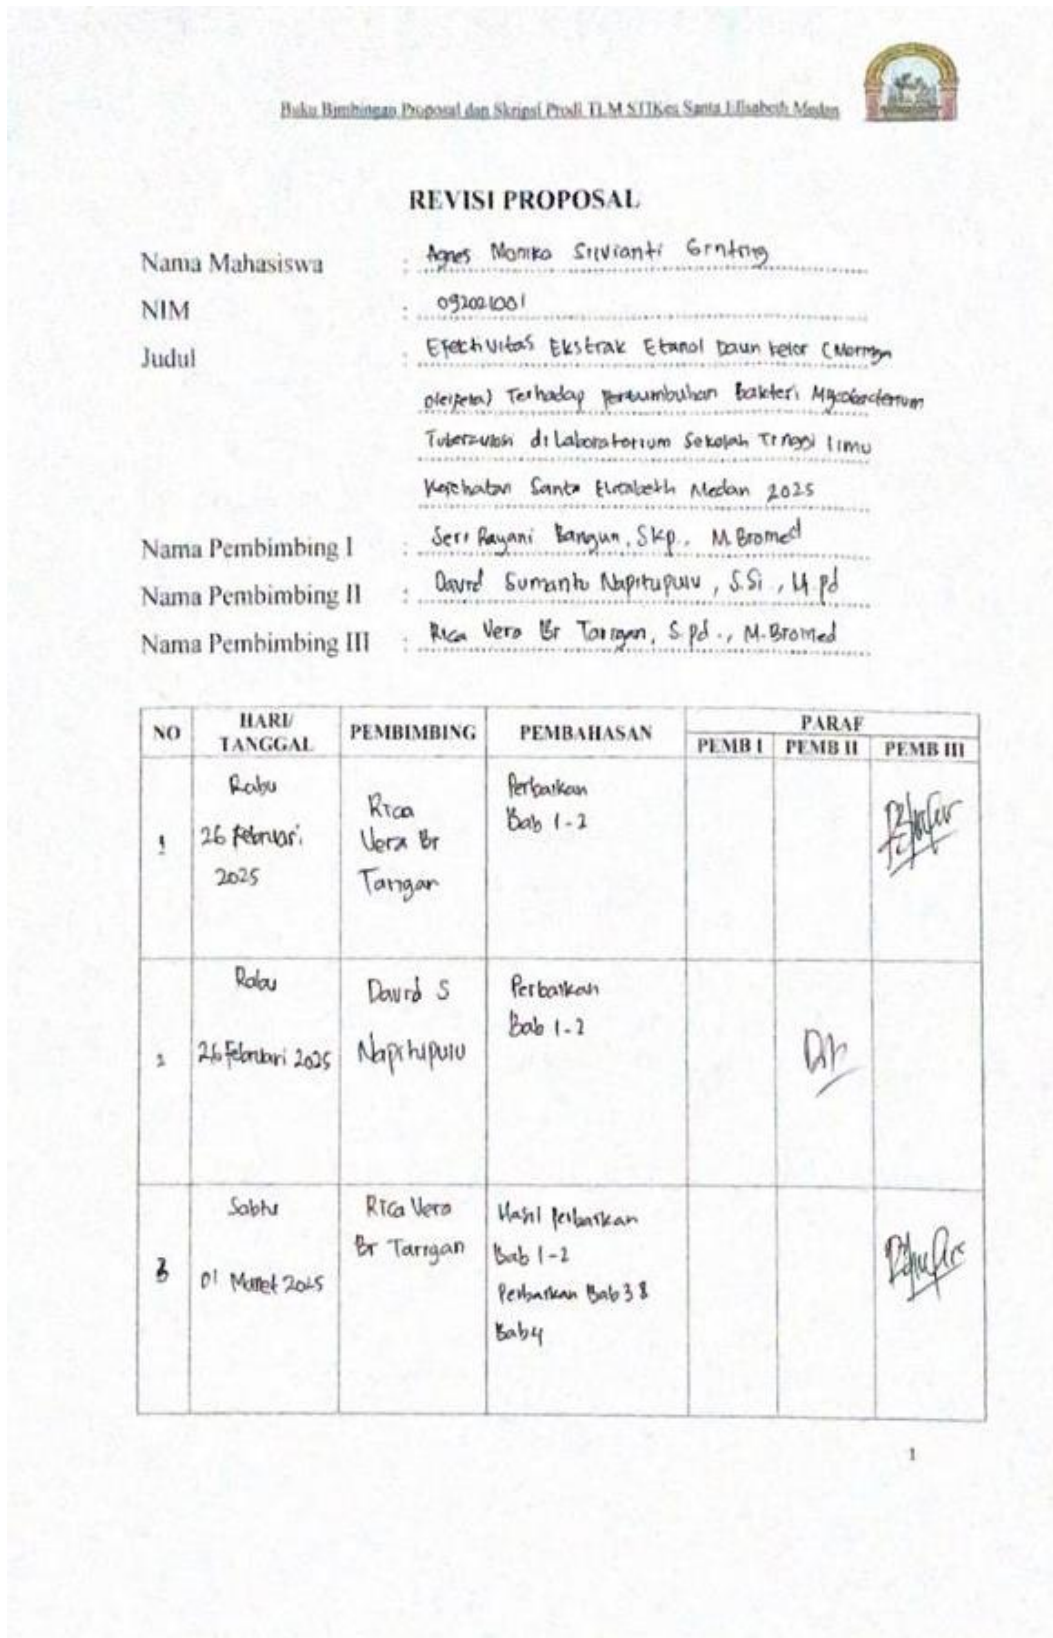 Buku Bimbingan Proposal dan Skripsi Prodi TLM STIKes Santa Elisabeth Medan
REVISI PROPOSAL
Nama Mahasiswa : Agnes Monika Silvianti Ginting
NIM : 092021001
Judul : Efektivitas Ekstrak Etanol Daun kelor (Moringa
oleifera) Terhadap Pertumbuhan Bakteri Mycobacterium
Tuberculosis di Laboratorium Sekolah Tinggi Ilmu
Kesehatan Santa Elisabeth Medan 2025
Nama Pembimbing I : Seri Rayani Bangun, Skp., M.Biomed
Nama Pembimbing II : David Sumanto Napitupulu, S.Si., M.pd
Nama Pembimbing III : Rica Vera Br Tarigan, S.pd., M.Biomed
NO HARI/ TANGGAL PEMBIMBING PEMBAHASAN PARAF
PEMB I PEMB II PEMB III
1 Rabu
26 Februari
2025
Rica
Vera Br
Tarigan
Perbaikan
Bab 1-2
2 Rabu
26 Februari 2025
David S
Napitupulu
Perbaikan
Bab 1-2
3 Sabtu
01 Maret 2025
Rica Vera
Br Tarigan
Hasil Perbaikan
Bab 1-2
Perbaikan Bab 3 &
Bab 4
1